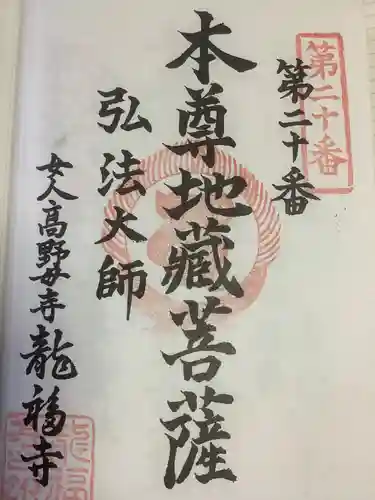 第二十番
第二十番
本尊地藏菩薩
弘法大師
女人高野山
龍福寺